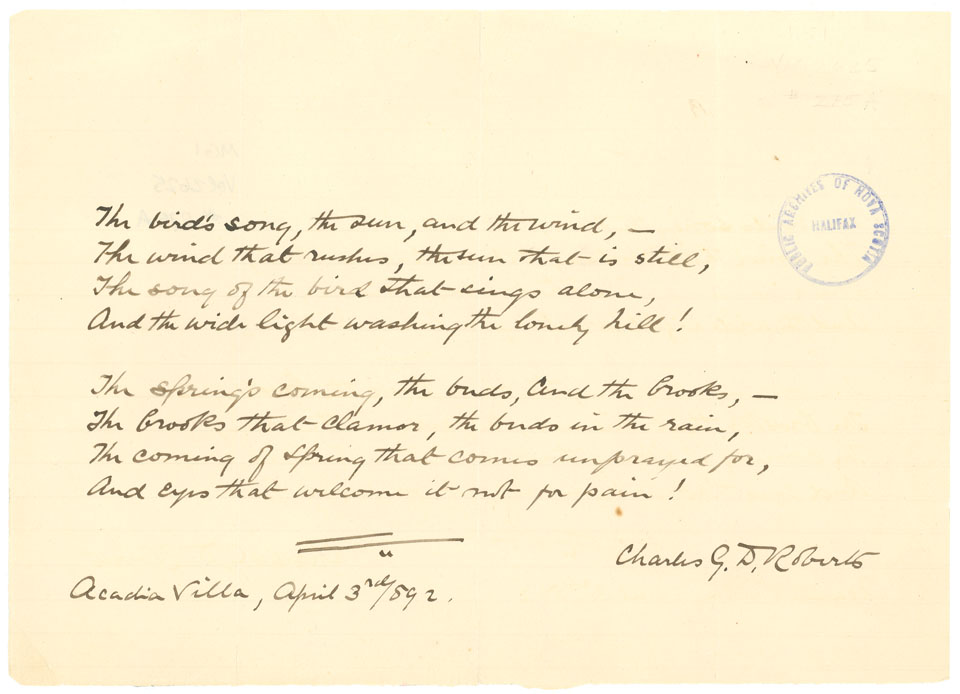 The bird's song, the sun, and the wind, —
The wind that rushes, the sun that is still,
The song of the bird that sings alone,
And the wide light washing the lonely hill!
The Spring's coming, the buds, and the brooks, —
The brooks that clamor, the buds in the rain,
The coming of Spring that comes unprayed for,
And eyes that welcome it not for pain!
Charles G. D. Roberts
Acadia Villa, April 3rd/892.
PUBLIC ARCHIVES OF NOVA SCOTIA
HALIFAX